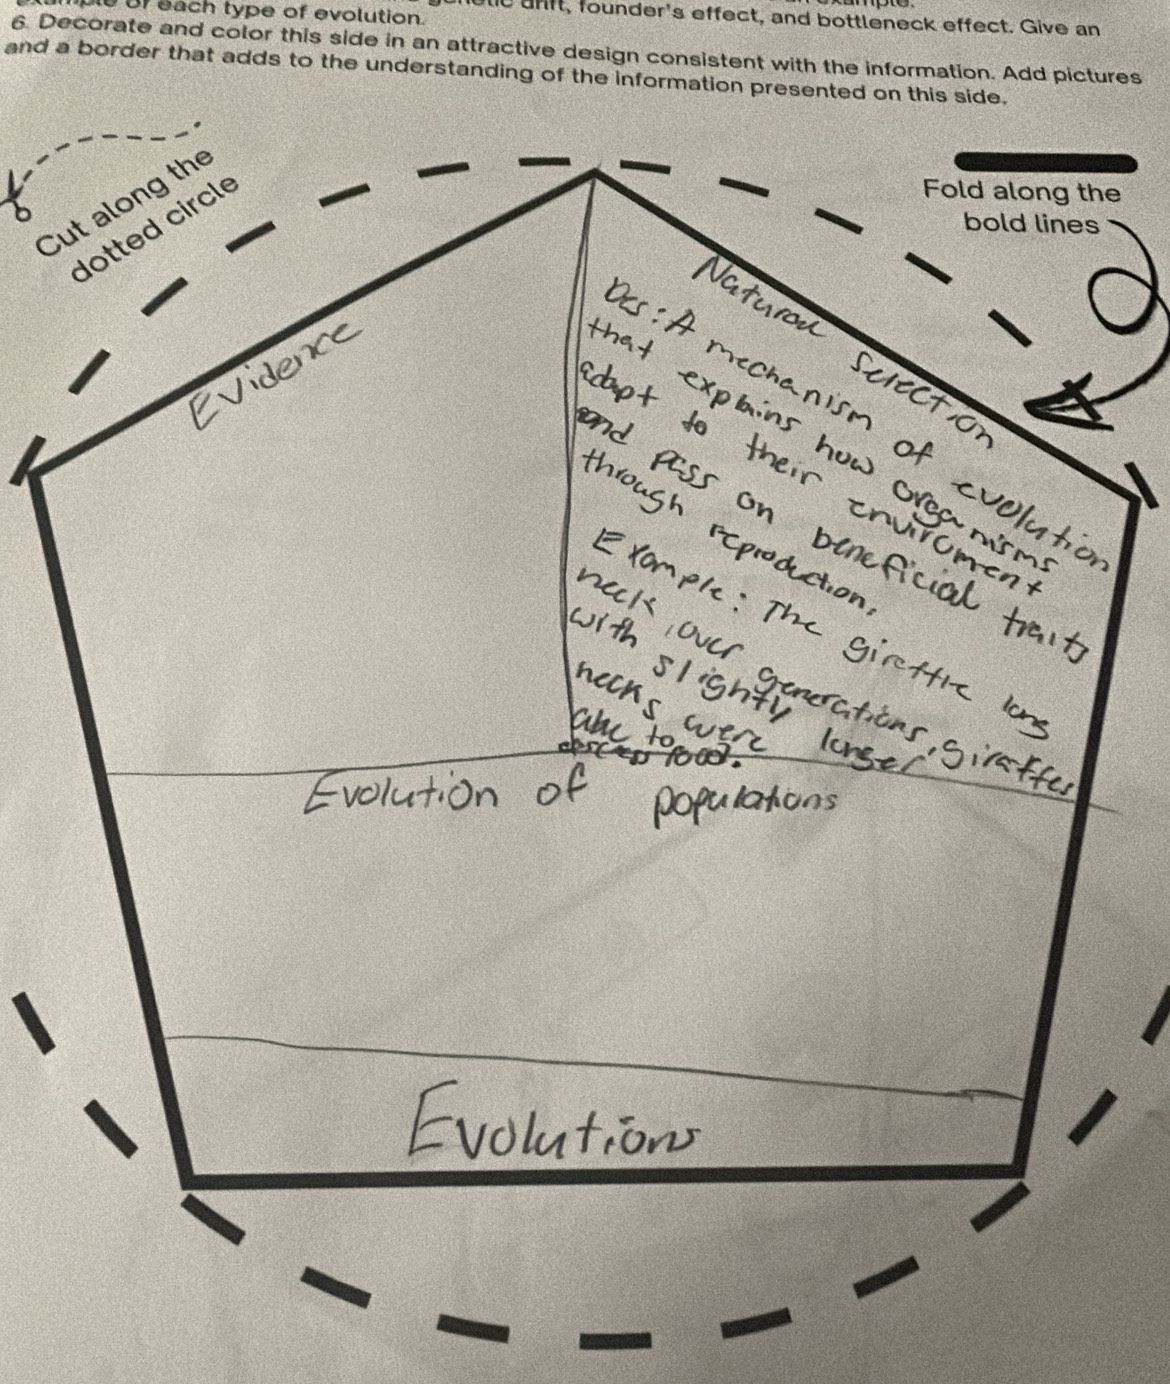 of each type of evolution. drift, founder's effect, and bottleneck effect. Give an
6. Decorate and color this side in an attractive design consistent with the information. Add pictures
and a border that adds to the understanding of the information presented on this side.
Cut along the
dotted circle
Fold along the
bold lines
Evidence
Natural Selection
Des: A mechanism of evolution
that explains how organisms
adapt to their enviroment
and pass on beneficial traits
through reproduction.
Example: The giraffie long
neck, over generations, giraffes
with slighty longer
necks were
able to
food.
Evolution of populations
Evolutions